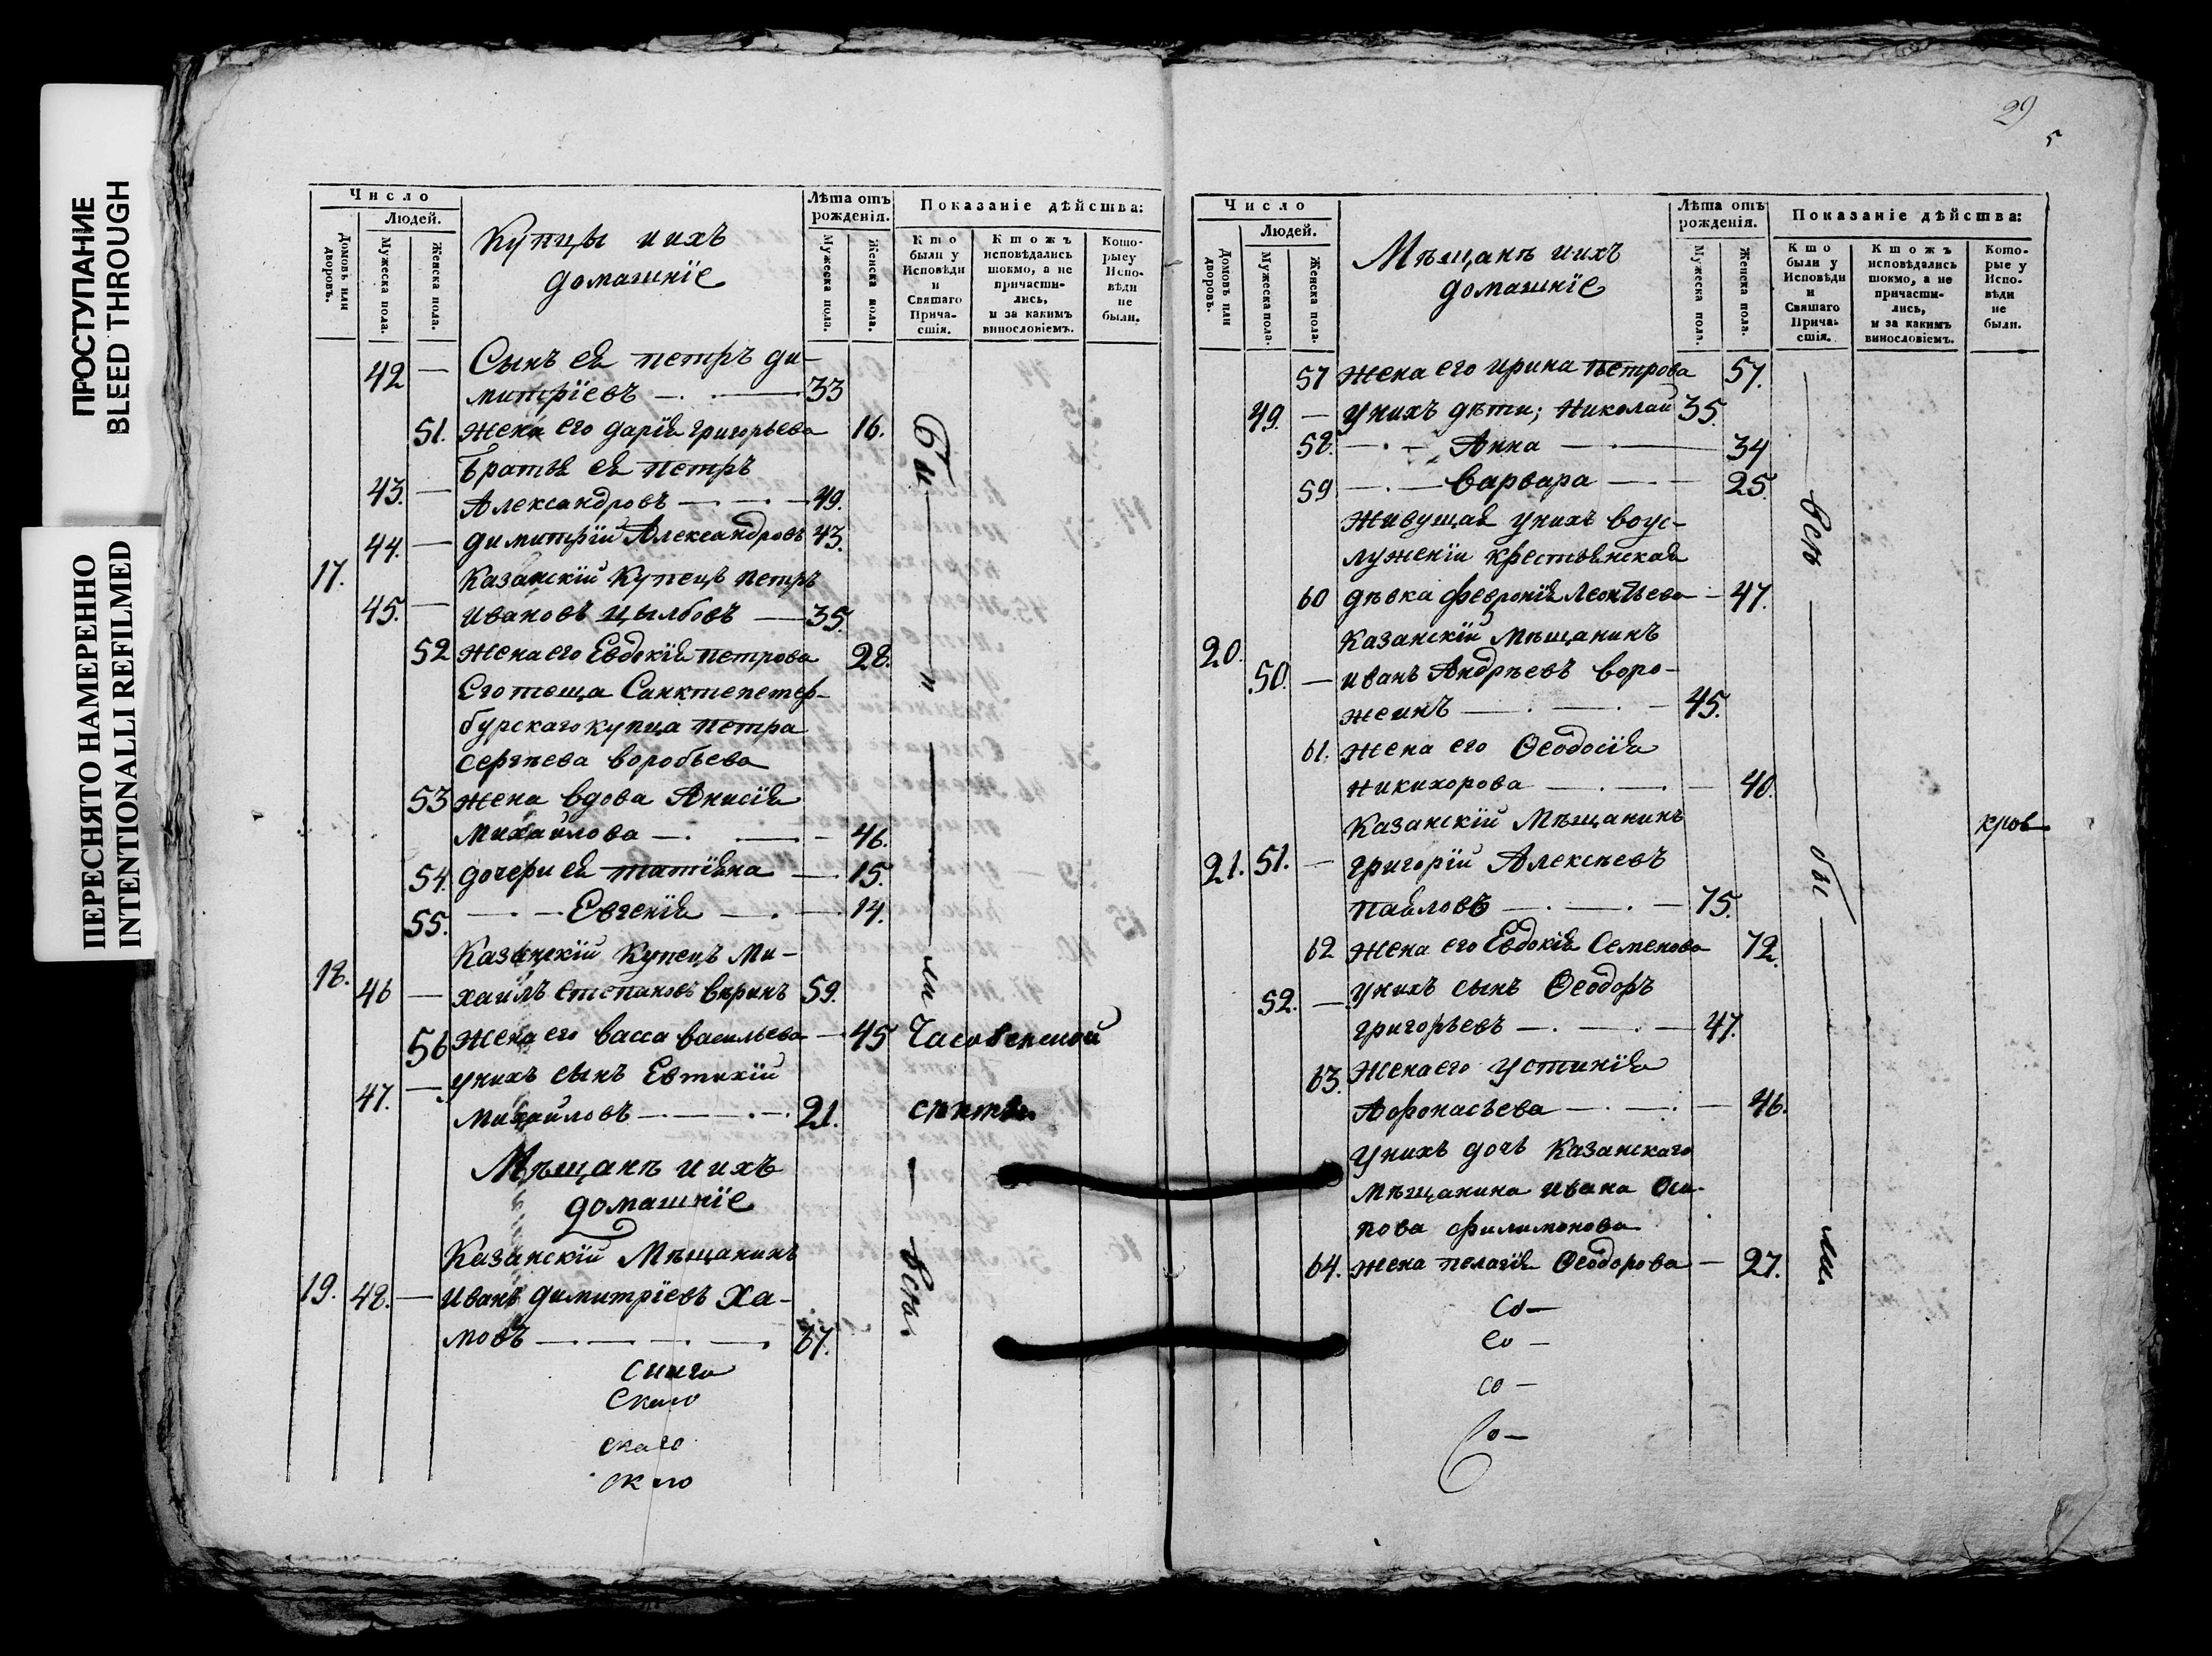 ПРОСТУПАНИЕ
BLEED THROUGH
ПЕРЕСНЯТО НАМЕРЕННО
INTENTIONALLI REFILMED
Число
Людей.
Домовъ или дворовъ.
Мужеска пола.
Женска пола.
Купцы и ихъ
домашнїе
Лѣта отъ рожденія.
Мужеска пола.
Женска пола.
Показаніе дѣйства:
Кто были у Исповѣди и Святаго Причастія.
Ктожъ исповѣдались токмо, а не причастились, и за какимъ винословіемъ.
Которыеу Исповѣди не были.
42 — Сынъ ея петръ ди-
митрїевъ — . — 33
51. жена его дарїя григорьева 16.
братья ея петръ
43. — Александровъ — . — . — 49.
44. — димитрїй Александровъ 43.
17. Казанскїй Купецъ петръ
45. — ивановъ цылбовъ — 35.
52 жена его Евдокїя петрова 28.
Его теща Санктепетер-
бурскаго купца петра
сергѣева воробьева
53 жена вдова Анисїя
михайлова — . — 46.
54. дочери ея татїяна — 15.
55. — . — Евгенїя — . — 14.
Казанскїй Купецъ Ми-
18. 46 — хаилъ степановъ вѣринъ 59.
56 жена его васса васильева — 45
47. — унихъ сынъ Евтихїй
михайловъ — . — . — . 21.
Мѣщанѣ и ихъ
домашнїе
Казанскїй Мѣщанинъ
19. 48. — Иванъ димитрїевъ Ха-
мовъ — . — . — . 67.
скаго
Бы — и — ли
Часовенской
всѣ.
29
5
Число
Людей.
Домовъ или дворовъ.
Мужеска пола.
Женска пола.
Мѣщанѣ и ихъ
домашнїе
Лѣта отъ рожденія.
Мужеска пола.
Женска пола.
Показаніе дѣйства:
Кто были у Исповѣди и Святаго Причастія.
Ктожъ исповѣдались токмо, а не причастились, и за какимъ винословіемъ.
Которые у Исповѣди не были.
57 жена его ирина петрова 57.
49. — унихъ дѣти; николай 35.
58. — . — Анна — . — 34
59 — . — варвара — . — 25.
живущая унихъ воус-
луженїи крестьянская
60 дѣвка февронїя леонтьева — 47.
20. Казанскїй мѣщанинъ
50. — иванъ Андрѣевъ воро-
жеинъ — . — . — 45.
61. жена его Ѳеодосїя
никихорова — . — . — 40.
Казанскїй Мѣщанинъ
21. 51. — григорїй Алексѣевъ
пайловъ — . — . — 75.
62 жена его Евдокїя Семенова 72.
52. — унихъ сынъ Ѳеодоръ
григорьевъ — . — . — 47.
63. Жена его устинїя
Афонасьева — . — . — 46.
унихъ дочь Казанскаго
мѣщанина ивана Оси-
пова филимонова
64. жена пелагїя Ѳеодорова — 27.
со —
со —
со —
Со —
всѣ — бы — ли.
кров